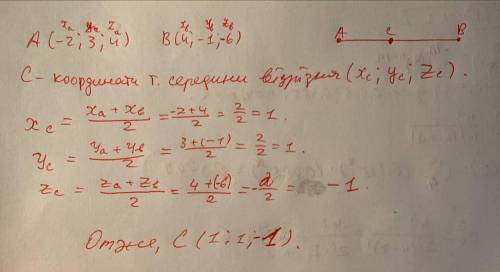 xₐ yₐ zₐ xв yв zв
A (-2; 3; 4) B(4; -1; -6) A C B
C - координати т. середини відрізня (xc; yc; zc).
xc = (xₐ + xв)/2 = (-2+4)/2 = 2/2 = 1.
yc = (yₐ + yв)/2 = (3+(-1))/2 = 2/2 = 1.
zc = (zₐ + zв)/2 = (4+(-6))/2 = -2/2 = -1.
Отже, C (1; 1; -1).